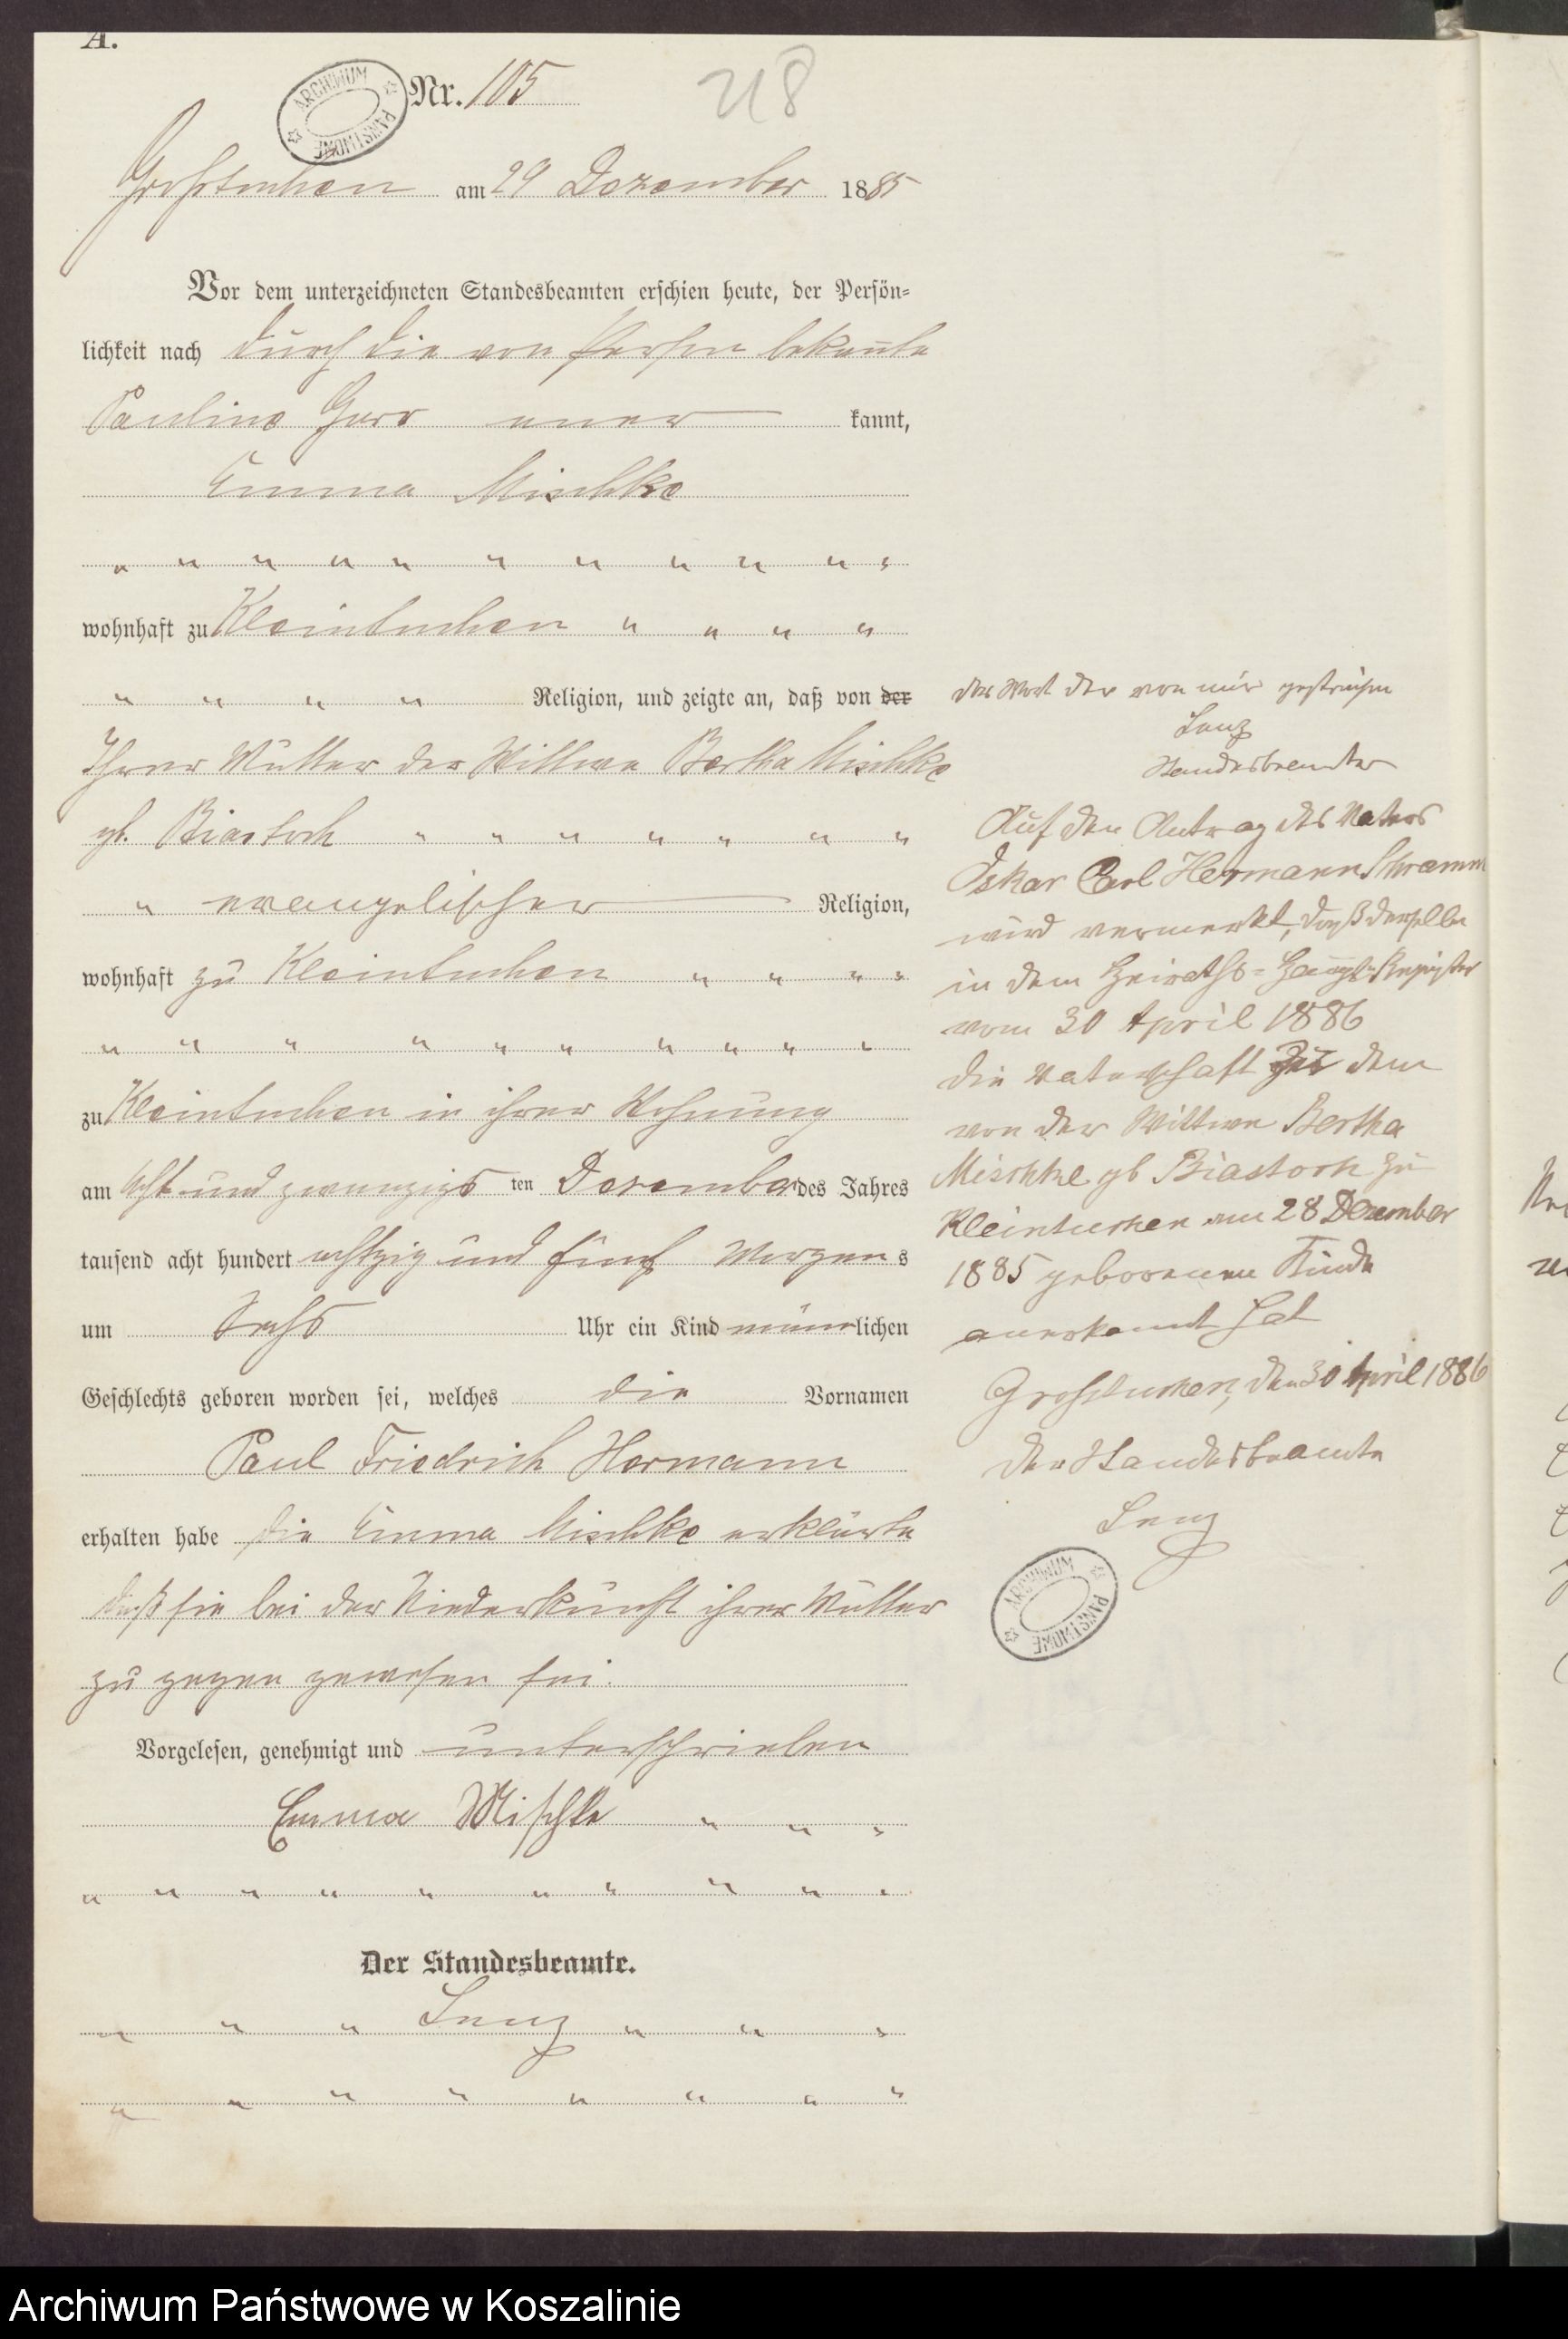 A.
Nr. 105
218
ARCHIWUM PAŃSTWOWE
Großtuchen am 29 Dezember 1885
Vor dem unterzeichneten Standesbeamten erschien heute, der Persön-
lichkeit nach durch die von Person bekannte
Pauline Gurr aner kannt,
Emma Mischke
wohnhaft zu Kleintuchen
Religion, und zeigte an, daß von der
Ihrer Mutter der Wittwe Bertha Mischke
gb. Biastoch
evangelischer Religion,
wohnhaft zu Kleintuchen
zu Kleintuchen in ihrer Wohnung
am Acht und zwanzigs ten Dezember des Jahres
tausend acht hundert achtzig und fünf Morgens
um Sechs Uhr ein Kind männlichen
Geschlechts geboren worden sei, welches die Vornamen
Paul Friedrich Hermann
erhalten habe die Emma Mischke erklärte
daß sie bei der Niederkunft ihrer Mutter
zu gegen gewesen sei.
Vorgelesen, genehmigt und unterschrieben
Emma Mischke
Der Standesbeamte.
Lenz
das Wort der von mir gestrichen
Lenz
Standesbeamter
Auf den Antrag des Vaters
Oskar Carl Hermann Schramm
wird vermerkt, daß derselbe
in dem Heiraths-Haupt-Register
vom 30 April 1886
die Vaterschaft zu dem
von der Wittwe Bertha
Mischke gb Biastoch zu
Kleintuchen am 28 Dezember
1885 geborenen Kinde
anerkannt hat
Großtuchen, den 30 April 1886
Der Standesbeamte
Lenz
ARCHIWUM PAŃSTWOWE
Archiwum Państwowe w Koszalinie